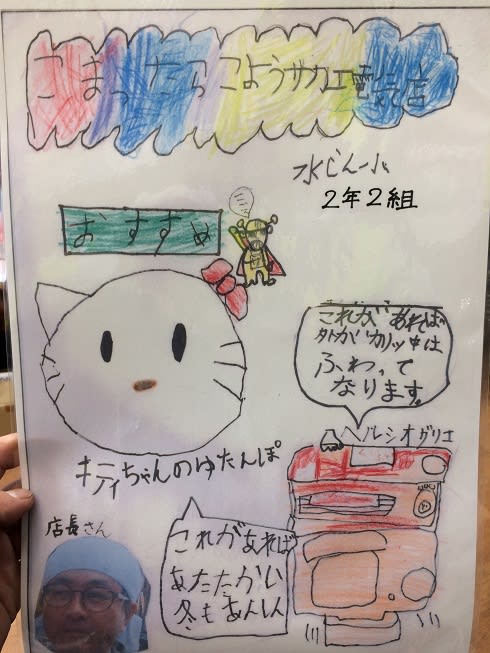 こまったらこようサカエ電気店
水じん小
2年2組
おすすめ
これがあれば
外がカリッ中は
ふわって
なります。
ヘルシオグリエ
キティちゃんのゆたんぽ
店長さん
これがあれば
あたたかい
冬もあんしん